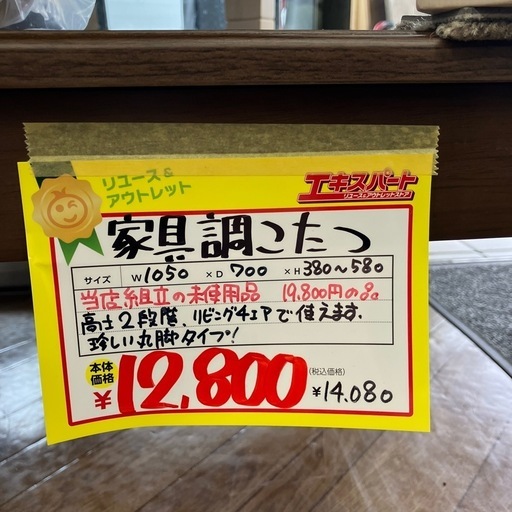 リユース&
アウトレット
エキスパート
リユース&アウトレットストア
家具調こたつ
サイズ W1050 ×D 700 ×H 380~580
当店組立の未使用品 19.800円の品
高さ2段階、リビングチェアで使えます。
珍しい丸脚タイプ!
本体
価格
¥12,800
(税込価格)
¥14.080